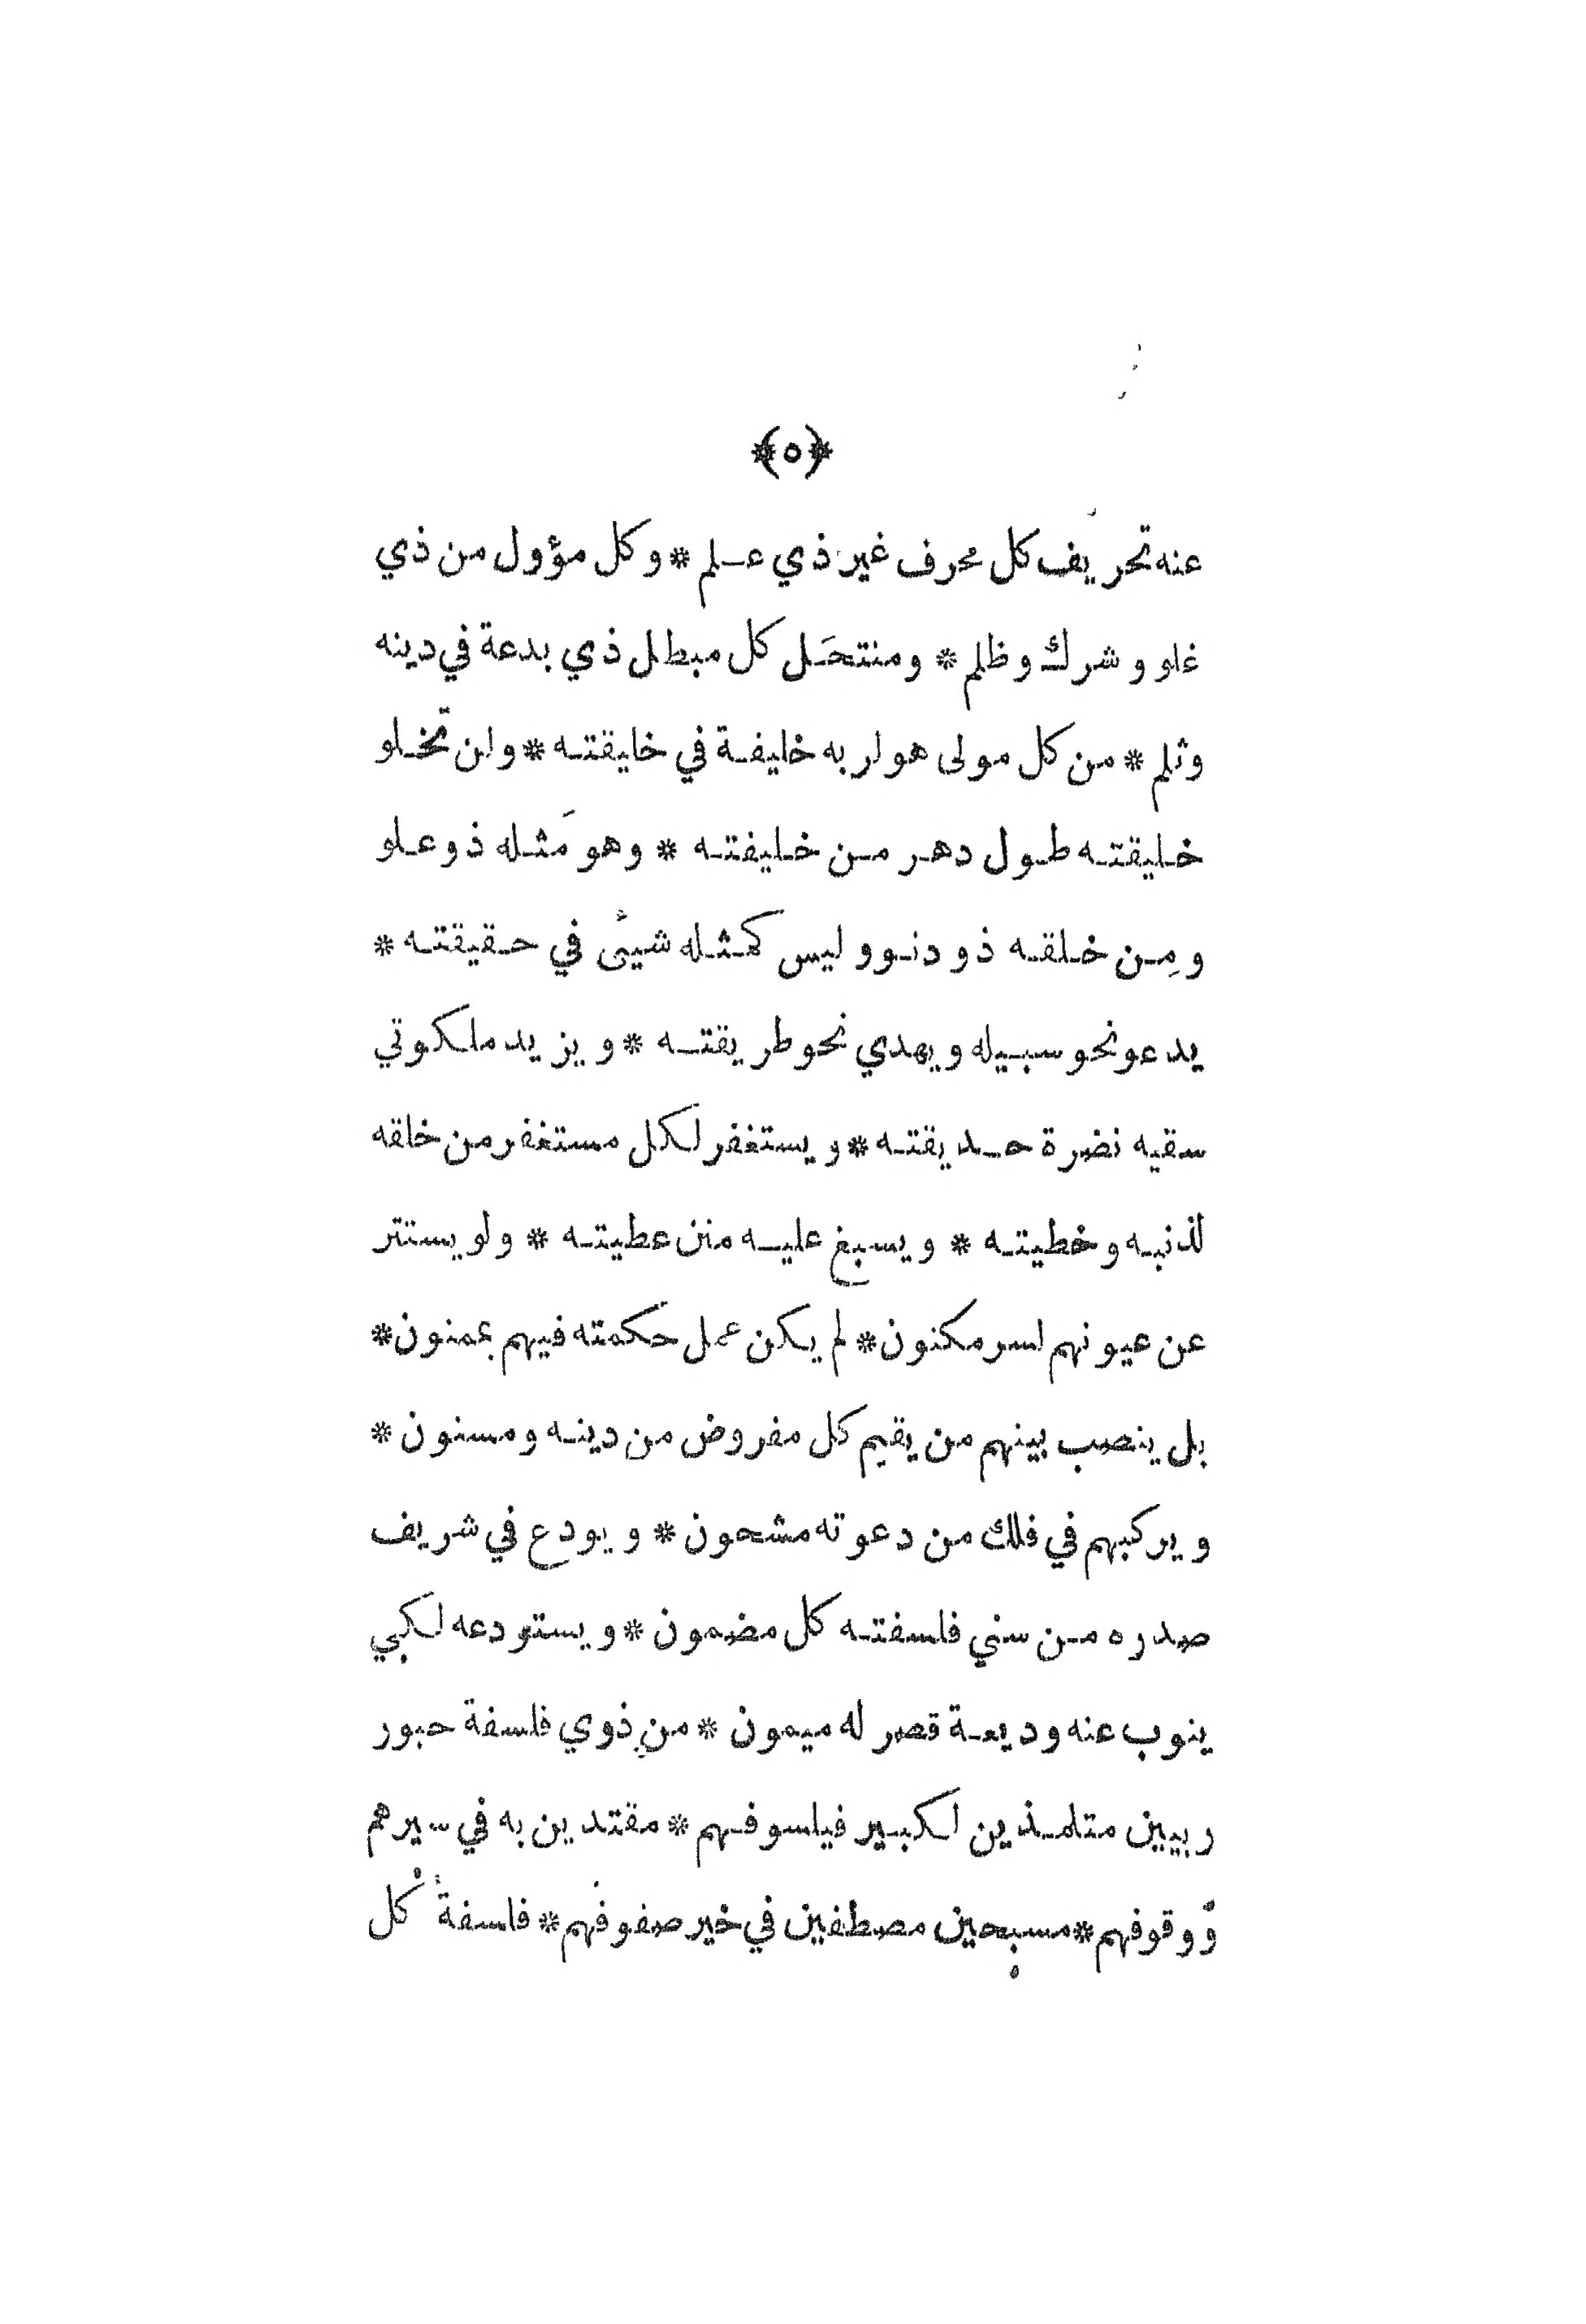 ﴿٥﴾
عنه تحريف كل محرف غير ذي علم * وكل مؤول من ذي
غلو وشرك وظلم * ومنتحَل كل مبطل ذي بدعة في دينه
وثلم * من كل مولى هو لربه خليفة في خليقته * ولن تخلو
خليقته طول دهر من خليفته * وهو مَثله ذو علو
ومِن خلقه ذو دنو وليس كمثله شيئٌ في حقيقته *
يدعو نحو سبيله ويهدي نحو طريقته * ويزيد ملكوتي
سقيه نضرة حديقته * ويستغفر لكل مستغفر من خلقه
لذنبه وخطيته * ويسبغ عليه منن عطيته * ولو يستتر
عن عيونهم لسر مكنون * لم يكن عمل حكمته فيهم بممنون *
بل ينصب بينهم من يقيم كل مفروض من دينه ومسنون *
ويركبهم في فلك من دعوته مشحون * ويودع في شريف
صدره من سني فلسفته كل مضمون * ويستودعه لكي
ينوب عنه وديعة قصر له ميمون * من ذوي فلسفة حبور
ربيين متلمذين لكبير فيلسوفهم * مقتدين به في سيرهم
ووقوفهم * مسبحين مصطفين في خير صفوفهم * فلسفة كل